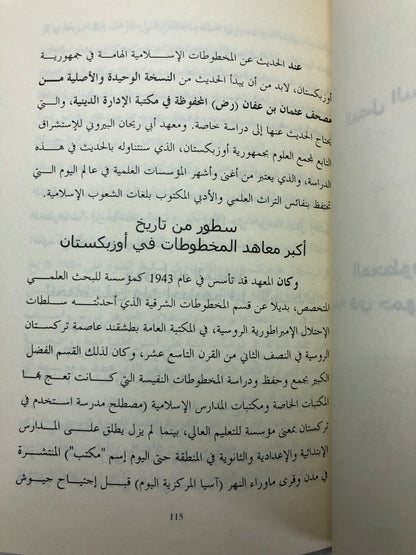 عند الحديث عن المخطوطات الإسلامية الهامة في جمهورية
أوزبكستان، لابد من أن يبدأ الحديث من النسخة الوحيدة والأصلية من
مصحف عثمان بن عفان (رض) المحفوظة في مكتبة الإدارة الدينية، والتي
يحتاج الحديث عنها إلى دراسة خاصة. ومعهد أبي ريحان البيروني للإستشراق
التابع لمجمع العلوم بجمهورية أوزبكستان، الذي سنتناوله بالحديث في هذه
الدراسة، والذي يعتبر من أغنى وأشهر المؤسسات العلمية في عالم اليوم التي
تحتفظ بنفائس التراث العلمي والأدبي المكتوب بلغات الشعوب الإسلامية.
سطور من تاريخ
أكبر معاهد المخطوطات في أوزبكستان
وكان المعهد قد تأسس في عام 1943 كمؤسسة للبحث العلمي
المتخصص، بديلا عن قسم المخطوطات الشرقية الذي أحدثته سلطات
الإحتلال الإمبراطورية الروسية، في المكتبة العامة بطشقند عاصمة تركستان
الروسية في النصف الثاني من القرن التاسع عشر، وكان لذلك القسم الفضل
الكبير بجمع وحفظ ودراسة المخطوطات النفيسة التي كانت تعج بها
المكتبات الخاصة ومكتبات المدارس الإسلامية (مصطلح مدرسة استخدم في
تركستان بمعنى مؤسسة للتعليم العالي، بينما لم يزل يطلق على المدارس
الإبتدائية والإعدادية والثانوية في المنطقة حتى اليوم إسم "مكتب") المنتشرة
في مدن وقرى ماوراء النهر (آسيا المركزية اليوم) قبل إجتياح جيوش
115